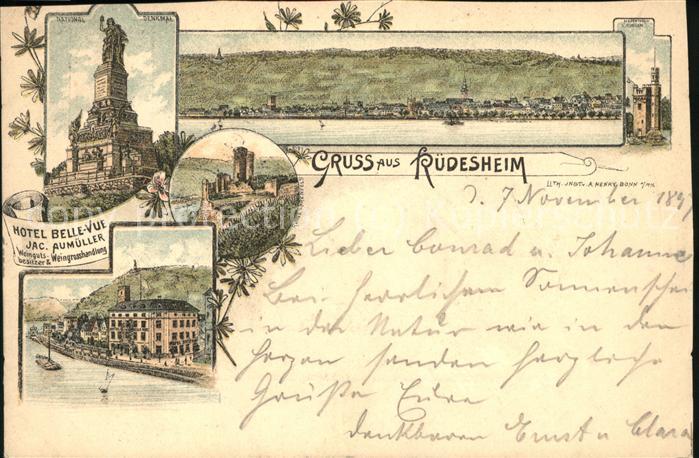 NATIONAL DENKMAL
GRUSS AUS RÜDESHEIM
LITH. INST. V. A. HENRY, BONN
HOTEL BELLE-VUE
JAC. AUMÜLLER
Weinguts-
besitzer & Weingrosshandlung
d. 7 November 1897
Lieber Conrad u. Johanne
Bei herrlichem Sonnenschei
in der Natur wie in den
Herzen senden herzliche
Grüße Eure
dankbaren Ernst u Clara